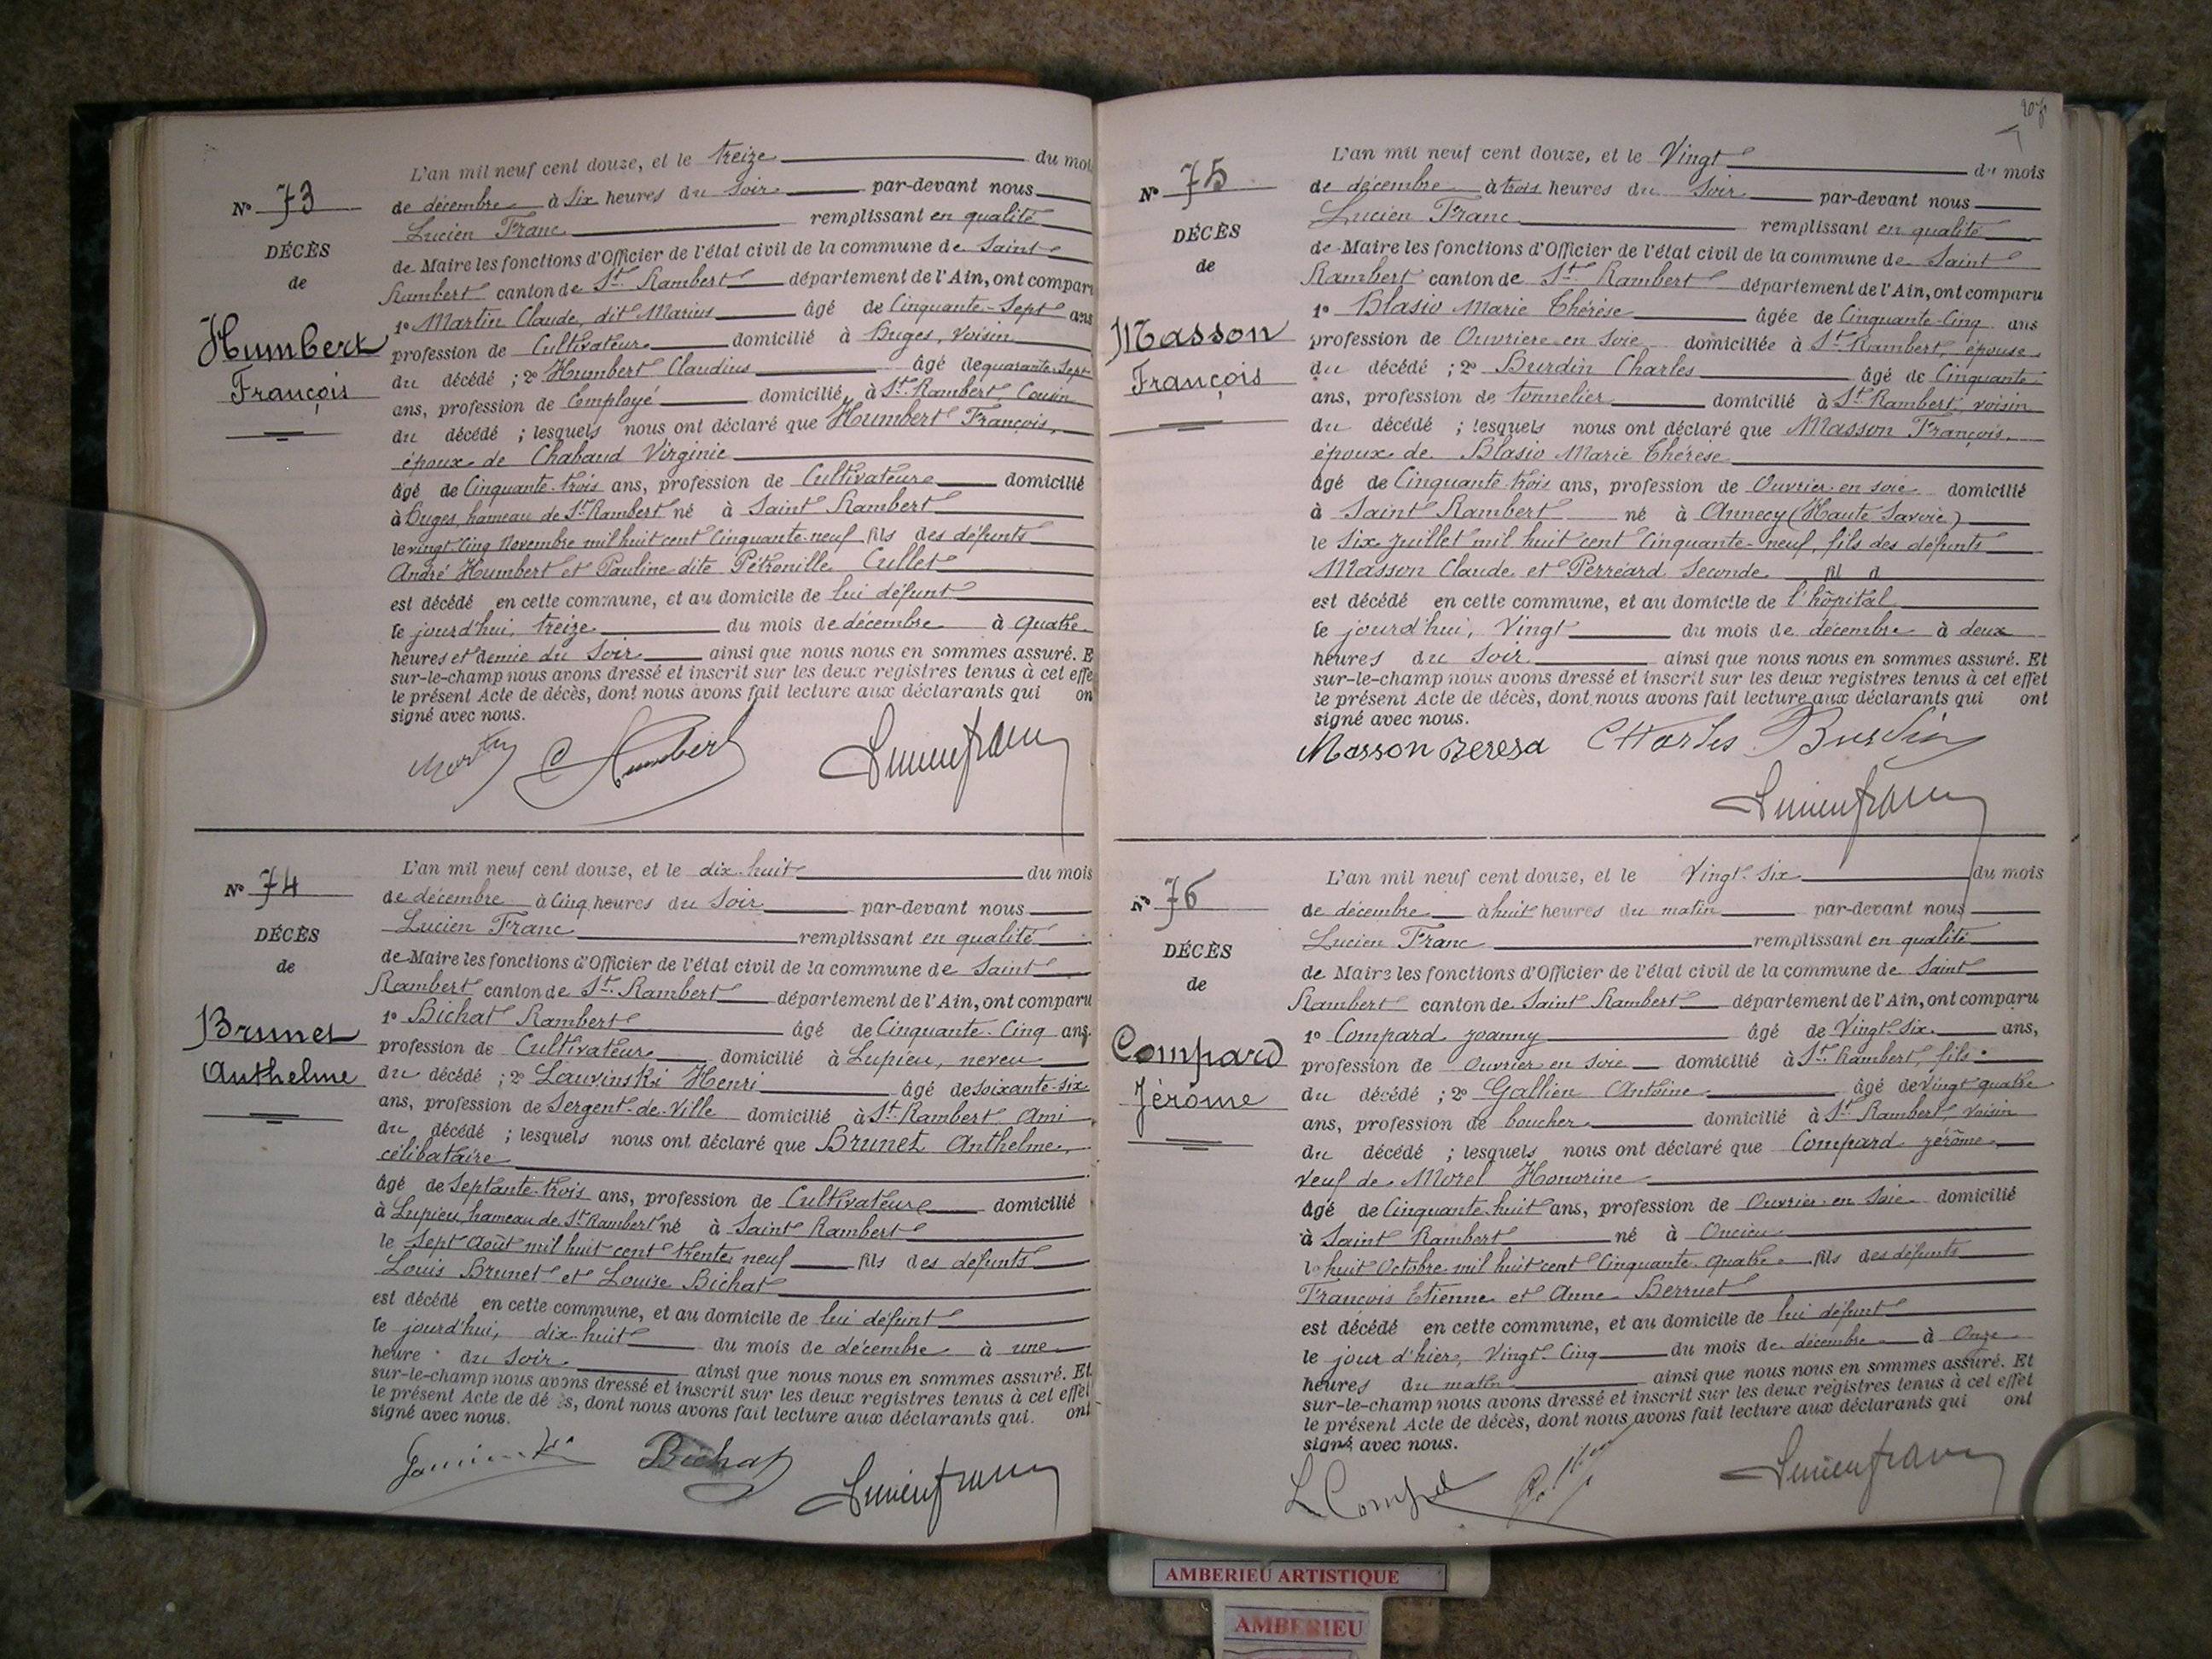 N° 73
DÉCÈS
de
Humbert
François
L'an mil neuf cent douze, et le treize du moi
de décembre à Six heures du Soir par-devant nous
Lucien Franc remplissant en qualité
de Maire les fonctions d'Officier de l'état civil de la commune de Saint
Rambert canton de St. Rambert département de l'Ain, ont compar
1° Martin Claude, dit Marius âgé de Cinquante-Sept ans
profession de Cultivateur domicilié à Buges, voisin
du décédé ; 2° Humbert Claudius âgé de quarante-Sept
ans, profession de Employé domicilié à St. Rambert, Cousin
du décédé ; lesquels nous ont déclaré que Humbert François,
époux de Chabaud Virginie
âgé de Cinquante-trois ans, profession de Cultivateur domicilié
à Buges, hameau de St Rambert né à Saint Rambert
le vingt Cinq Novembre mil huit cent Cinquante-neuf fils des défunts
André Humbert et Pauline dite Pétronille Cullet
est décédé en cette commune, et au domicile de lui défunt
le jourd'hui, treize du mois de décembre à quatre
heures et demie du Soir ainsi que nous nous en sommes assuré. E
sur-le-champ nous avons dressé et inscrit sur les deux registres tenus à cet effe
le présent Acte de décès, dont nous avons fait lecture aux déclarants qui on
signé avec nous.
Martin C Humbert Lucien franc
N° 74
DÉCÈS
de
Brunet
Anthelme
L'an mil neuf cent douze, et le dix-huit du mois
de décembre à Cinq heures du Soir par-devant nous
Lucien Franc remplissant en qualité
de Maire les fonctions d'Officier de l'état civil de la commune de Saint
Rambert canton de St. Rambert département de l'Ain, ont comparu
1° Bichat Rambert âgé de Cinquante-Cinq ans,
profession de Cultivateur domicilié à Lupieu, neveu
du décédé ; 2° Lauvinski Henri âgé de soixante-six
ans, profession de Sergent-de-Ville domicilié à St. Rambert, Ami
du décédé ; lesquels nous ont déclaré que Brunet Anthelme,
célibataire
âgé de Septante-trois ans, profession de Cultivateur domicilié
à Lupieu, hameau de St Rambert né à Saint Rambert
le Sept Août mil huit cent trente neuf fils des défunts
Louis Brunet et Louise Bichat
est décédé en cette commune, et au domicile de lui défunt
le jourd'hui, dix-huit du mois de décembre à une
heure du Soir ainsi que nous nous en sommes assuré. Et
sur-le-champ nous avons dressé et inscrit sur les deux registres tenus à cet effet
le présent Acte de dé s, dont nous avons fait lecture aux déclarants qui. ont
signé avec nous.
Bichat Lucien franc
N° 75
DÉCÈS
de
Masson
François
L'an mil neuf cent douze, et le Vingt du mois
de décembre à trois heures du Soir par-devant nous
Lucien Franc remplissant en qualité
de Maire les fonctions d'Officier de l'état civil de la commune de Saint
Rambert canton de St. Rambert département de l'Ain, ont comparu
1° Blasio Marie Thérèse âgée de Cinquante-Cinq ans
profession de Ouvrière en Soie domiciliée à St. Rambert, épouse
du décédé ; 2° Burdin Charles âgé de Cinquante
ans, profession de tonnelier domicilié à St. Rambert, voisin
du décédé ; lesquels nous ont déclaré que Masson François,
époux de Blasio Marie Thérèse
âgé de Cinquante-trois ans, profession de Ouvrier en soie domicilié
à Saint Rambert né à Annecy (Haute Savoie)
le Six Juillet mil huit cent Cinquante-neuf, fils des défunts
Masson Claude et Perréard Seconde fil d
est décédé en cette commune, et au domicile de l'hôpital
le jourd'hui, Vingt du mois de décembre à deux
heures du Soir ainsi que nous nous en sommes assuré. Et
sur-le-champ nous avons dressé et inscrit sur les deux registres tenus à cet effet
le présent Acte de décès, dont nous avons fait lecture aux déclarants qui ont
signé avec nous.
Masson Teresa Charles Burdin
Lucien franc
N° 76
DÉCÈS
de
Compard
Jérôme
L'an mil neuf cent douze, et le Vingt-Six du mois
de décembre à huit heures du matin par-devant nous
Lucien Franc remplissant en qualité
de Maire les fonctions d'Officier de l'état civil de la commune de Saint
Rambert canton de Saint Rambert département de l'Ain, ont comparu
1° Compard Joanny âgé de Vingt-Six ans,
profession de Ouvrier en Soie domicilié à St. Rambert, fils
du décédé ; 2° Gallien Antoine âgé de vingt-quatre
ans, profession de boucher domicilié à St. Rambert, voisin
du décédé ; lesquels nous ont déclaré que Compard Jérôme,
veuf de Morel Honorine
âgé de Cinquante-huit ans, profession de Ouvrier en Soie domicilié
à Saint Rambert né à Oncieu
le huit Octobre mil huit cent Cinquante-quatre fils des défunts
François Etienne et Anne Berruet
est décédé en cette commune, et au domicile de lui défunt
le jour d'hier, Vingt-Cinq du mois de décembre à Onze
heures du matin ainsi que nous nous en sommes assuré. Et
sur-le-champ nous avons dressé et inscrit sur les deux registres tenus à cet effet
le présent Acte de décès, dont nous avons fait lecture aux déclarants qui ont
signé avec nous.
Lucien franc
AMBERIEU ARTISTIQUE
AMBERIEU